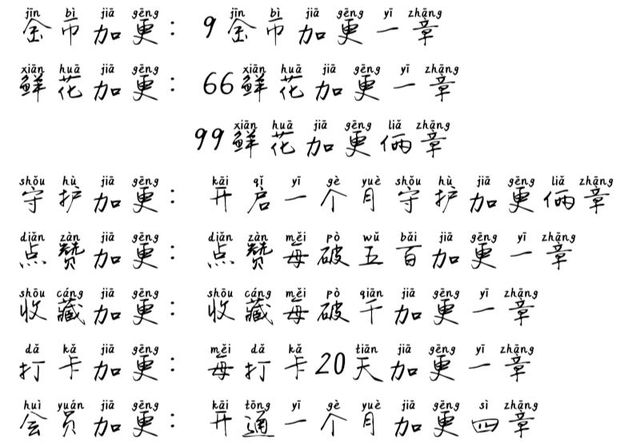 jīn bì jiā gēng jīn bì jiā gēng yī zhāng
金币加更：9金币加更一章
xiān huā jiā gēng xiān huā jiā gēng yī zhāng
鲜花加更：66鲜花加更一章
xiān huā jiā gēng liǎ zhāng
99鲜花加更俩章
shǒu hù jiā gēng kāi qǐ yī gè yuè shǒu hù jiā gēng liǎ zhāng
守护加更：开启一个月守护加更俩章
diǎn zàn jiā gēng diǎn zàn měi pò wǔ bǎi jiā gēng yī zhāng
点赞加更：点赞每破五百加更一章
shōu cáng jiā gēng shōu cáng měi pò qiān jiā gēng yī zhāng
收藏加更：收藏每破千加更一章
dǎ kǎ jiā gēng měi dǎ kǎ tiān jiā gēng yī zhāng
打卡加更：每打卡20天加更一章
huì yuán jiā gēng kāi tōng yī gè yuè jiā gēng sì zhāng
会员加更：开通一个月加更四章